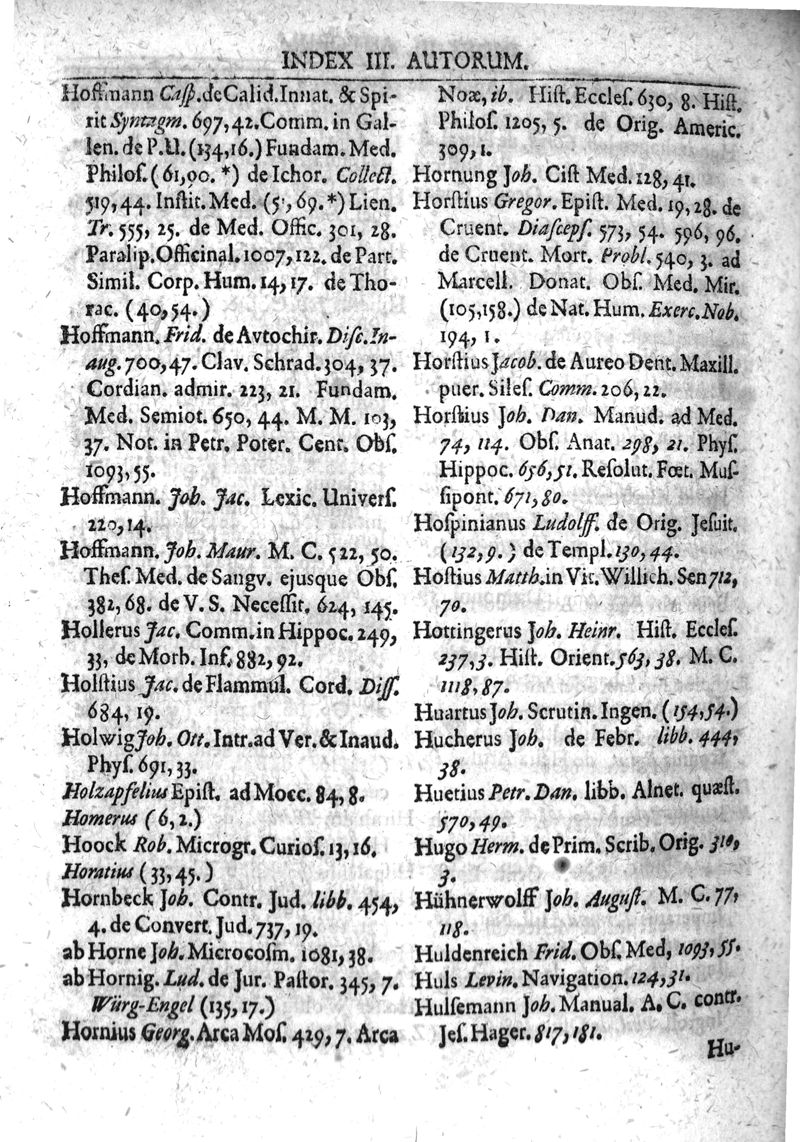 INDEX III. AUTORUM.
Hoffmann Caſp. de Calid. Innat. & Spi-
rit Syntagm. 697, 42. Comm. in Gal-
len. de P.U. (134, 16.) Fundam. Med.
Philoſ. (61, 90. *) de Ichor. Collect.
519, 44. Inſtit. Med. (5', 69. *) Lien.
Tr. 555, 25. de Med. Offic. 301, 28.
Paralip. Officinal. 1007, 122. de Part.
Simil. Corp. Hum. 14, 17. de Tho-
rac. (40, 54.)
Hoffmann. Frid. de Avtochir. Diſc. In-
aug. 700, 47. Clav. Schrad. 304, 37.
Cordian. admir. 223, 21. Fundam.
Med. Semiot. 650, 44. M. M. 103,
37. Not. in Petr. Poter. Cent. Obſ.
1093, 55.
Hoffmann. Joh. Jac. Lexic. Univerſ.
220, 14.
Hoffmann. Joh. Maur. M. C. 522, 50.
Theſ. Med. de Sangv. ejusque Obſ.
382, 68. de V. S. Neceſſit. 624, 145.
Hollerus Jac. Comm. in Hippoc. 249,
33, de Morb. Inf. 882, 92.
Holſtius Jac. de Flammul. Cord. Diſſ.
684, 19.
Holwig Joh. Ott. Intr. ad Ver. & Inaud.
Phyſ. 691, 33.
Holzapfelius Epiſt. ad Mocc. 84, 8.
Homerus (6, 2.)
Hoock Rob. Microgr. Curioſ. 13, 16.
Horatius (33, 45.)
Hornbeck Joh. Contr. Jud. libb. 454,
4. de Convert. Jud. 737, 19.
ab Horne Joh. Microcoſm. 1081, 38.
ab Hornig. Lud. de Jur. Paſtor. 345, 7.
Würg-Engel (135, 17.)
Hornius Georg. Arca Moſ. 429, 7. Arca
Noæ, ib. Hiſt. Eccleſ. 630, 8. Hiſt.
Philoſ. 1205, 5. de Orig. Americ.
309, 1.
Hornung Joh. Ciſt Med. 128, 41.
Horſtius Gregor. Epiſt. Med. 19, 28. de
Cruent. Diaſcepſ. 573, 54. 596, 96.
de Cruent. Mort. Probl. 540, 3. ad
Marcell. Donat. Obſ. Med. Mir.
(105, 158.) de Nat. Hum. Exerc. Nob.
194, 1.
Horſtius Jacob. de Aureo Dent. Maxill.
puer. Sileſ. Comm. 206, 22.
Horſtius Joh. Dan. Manud. ad Med.
74, 114. Obſ. Anat. 298, 21. Phyſ.
Hippoc. 656, 51. Reſolut. Fœt. Muſ-
ſipont. 671, 80.
Hoſpinianus Ludolff. de Orig. Jeſuit.
(132, 9.) de Templ. 130, 44.
Hoſtius Matth. in Vit. Willich. Sen 712,
70.
Hottingerus Joh. Heinr. Hiſt. Eccleſ.
237, 3. Hiſt. Orient. 563, 38. M. C.
1118, 87.
Huartus Joh. Scrutin. Ingen. (154, 54.)
Hucherus Joh. de Febr. libb. 444,
38.
Huetius Petr. Dan. libb. Alnet. quæſt.
570, 49.
Hugo Herm. de Prim. Scrib. Orig. 310,
3.
Hühnerwolff Joh. Auguſt. M. C. 77,
118.
Huldenreich Frid. Obſ. Med, 1093, 55.
Huls Levin. Navigation. 124, 31.
Hulſemann Joh. Manual. A. C. contr.
Jeſ. Hager. 817, 181.
Hu-